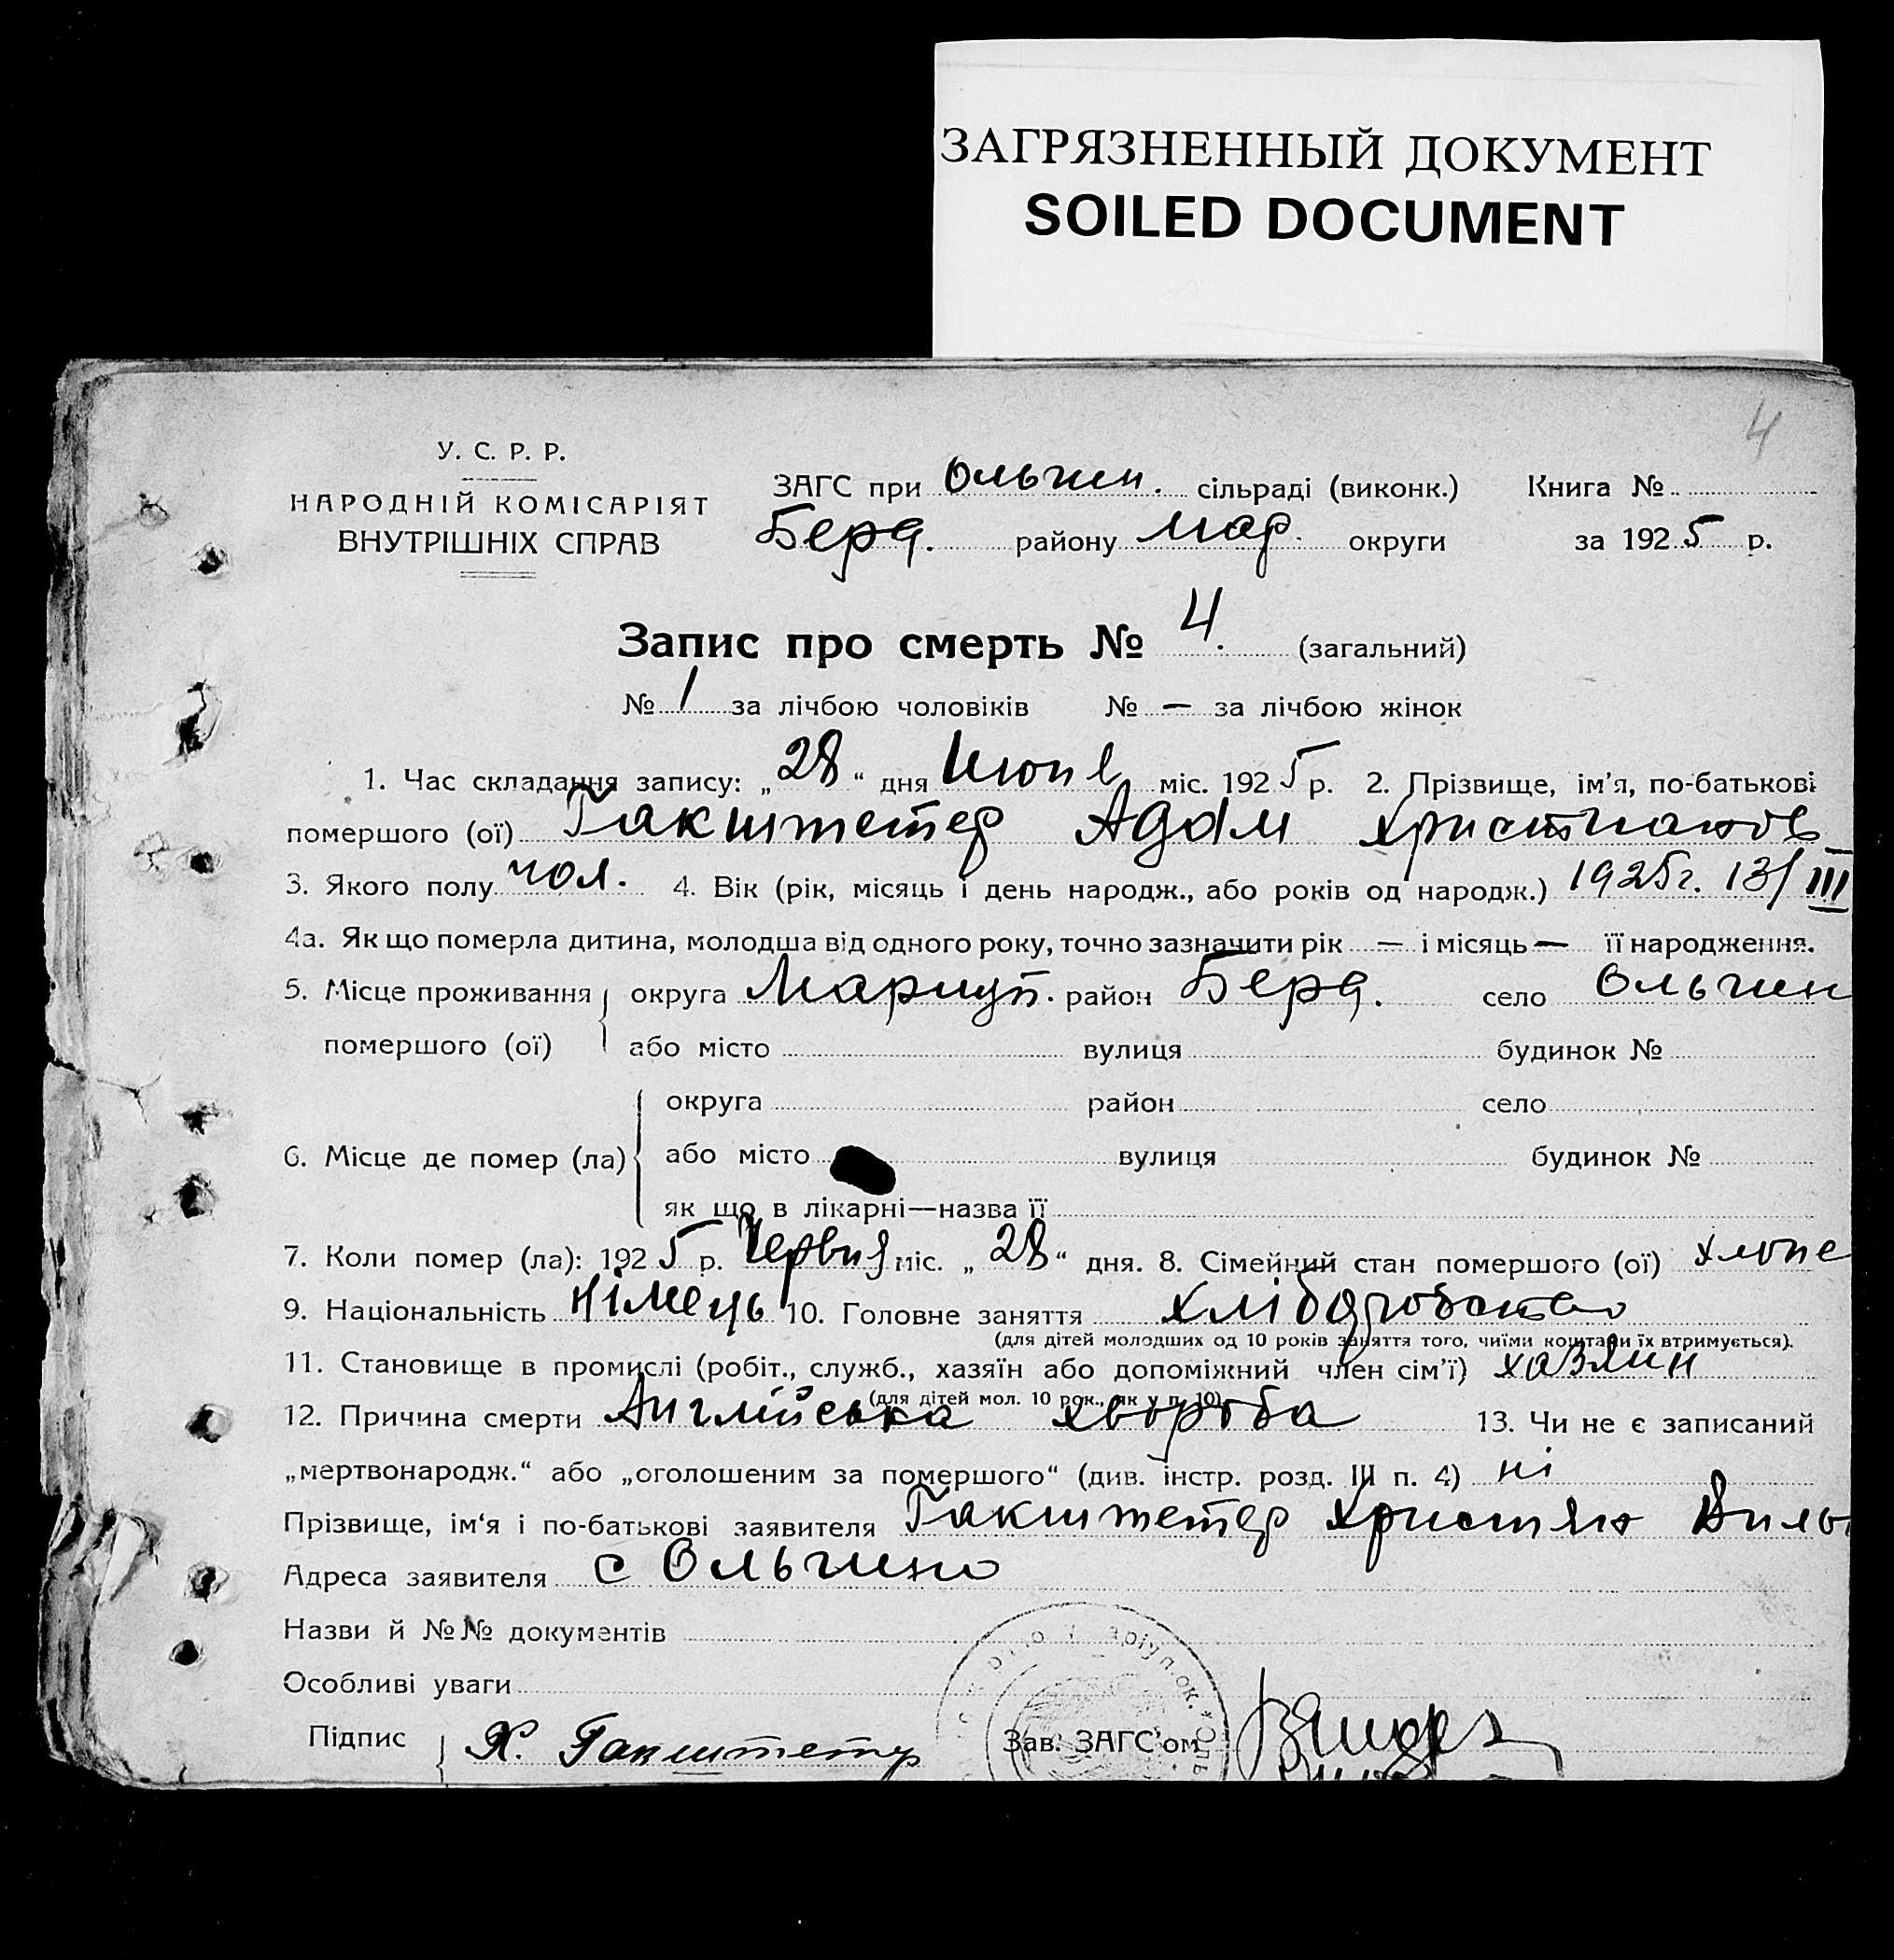 ЗАГРЯЗНЕННЫЙ ДОКУМЕНТ
SOILED DOCUMENT
4
У. С. Р. Р.
НАРОДНІЙ КОМІСАРІЯТ
ВНУТРІШНІХ СПРАВ
ЗАГС при Ольгин. сільраді (виконк.) Книга №
Берд. району Мар. округи за 1925 р.
Запис про смерть № 4. (загальний)
№ 1 за лічбою чоловіків № — за лічбою жінок
1. Час складання запису: „28“ дня Июня міс. 1925 р. 2. Прізвище, ім’я, по-батькові
помершого (ої) Гакштетер Адам Христианов
3. Якого полу чол. 4. Вік (рік, місяць і день народж., або років од народж.) 1925г. 13/III
4а. Як що померла дитина, молодша від одного року, точно зазначити рік — і місяць — її народження.
5. Місце проживання округа Мариуп. район Берд. село Ольгин
помершого (ої) або місто вулиця будинок №
округа район село
6. Місце де помер (ла) або місто вулиця будинок №
як що в лікарні—назва її
7. Коли помер (ла): 1925 р. Червня міс. „28“ дня. 8. Сімейний стан помершого (ої) хлопе
9. Національність німець 10. Головне заняття хліборобство
(для дітей молодших од 10 років заняття того, чиїми коштами їх втримується).
11. Становище в промислі (робіт., служб., хазяїн або допоміжний член сім’ї) хазяин
(для дітей мол. 10 рок., як у п. 10)
12. Причина смерти Англійська хвороба 13. Чи не є записаний
„мертвонародж.“ або „оголошеним за помершого“ (див. інстр. розд. III п. 4) ні
Прізвище, ім‘я і по-батькові заявителя Гакштетер Християн Виль
Адреса заявителя с Ольгино
Назви й №№ документів
Особливі уваги
Підпис Х. Гакштетер Зав. ЗАГС’ом